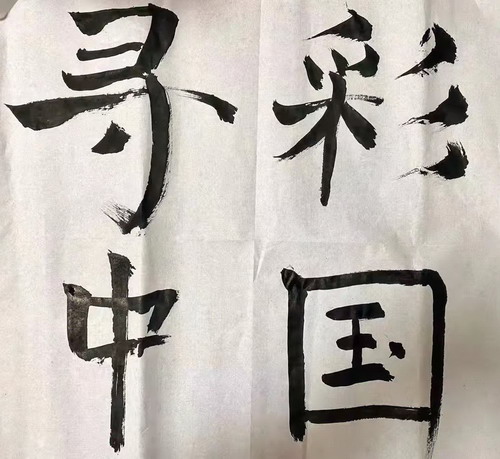 寻彩
中国